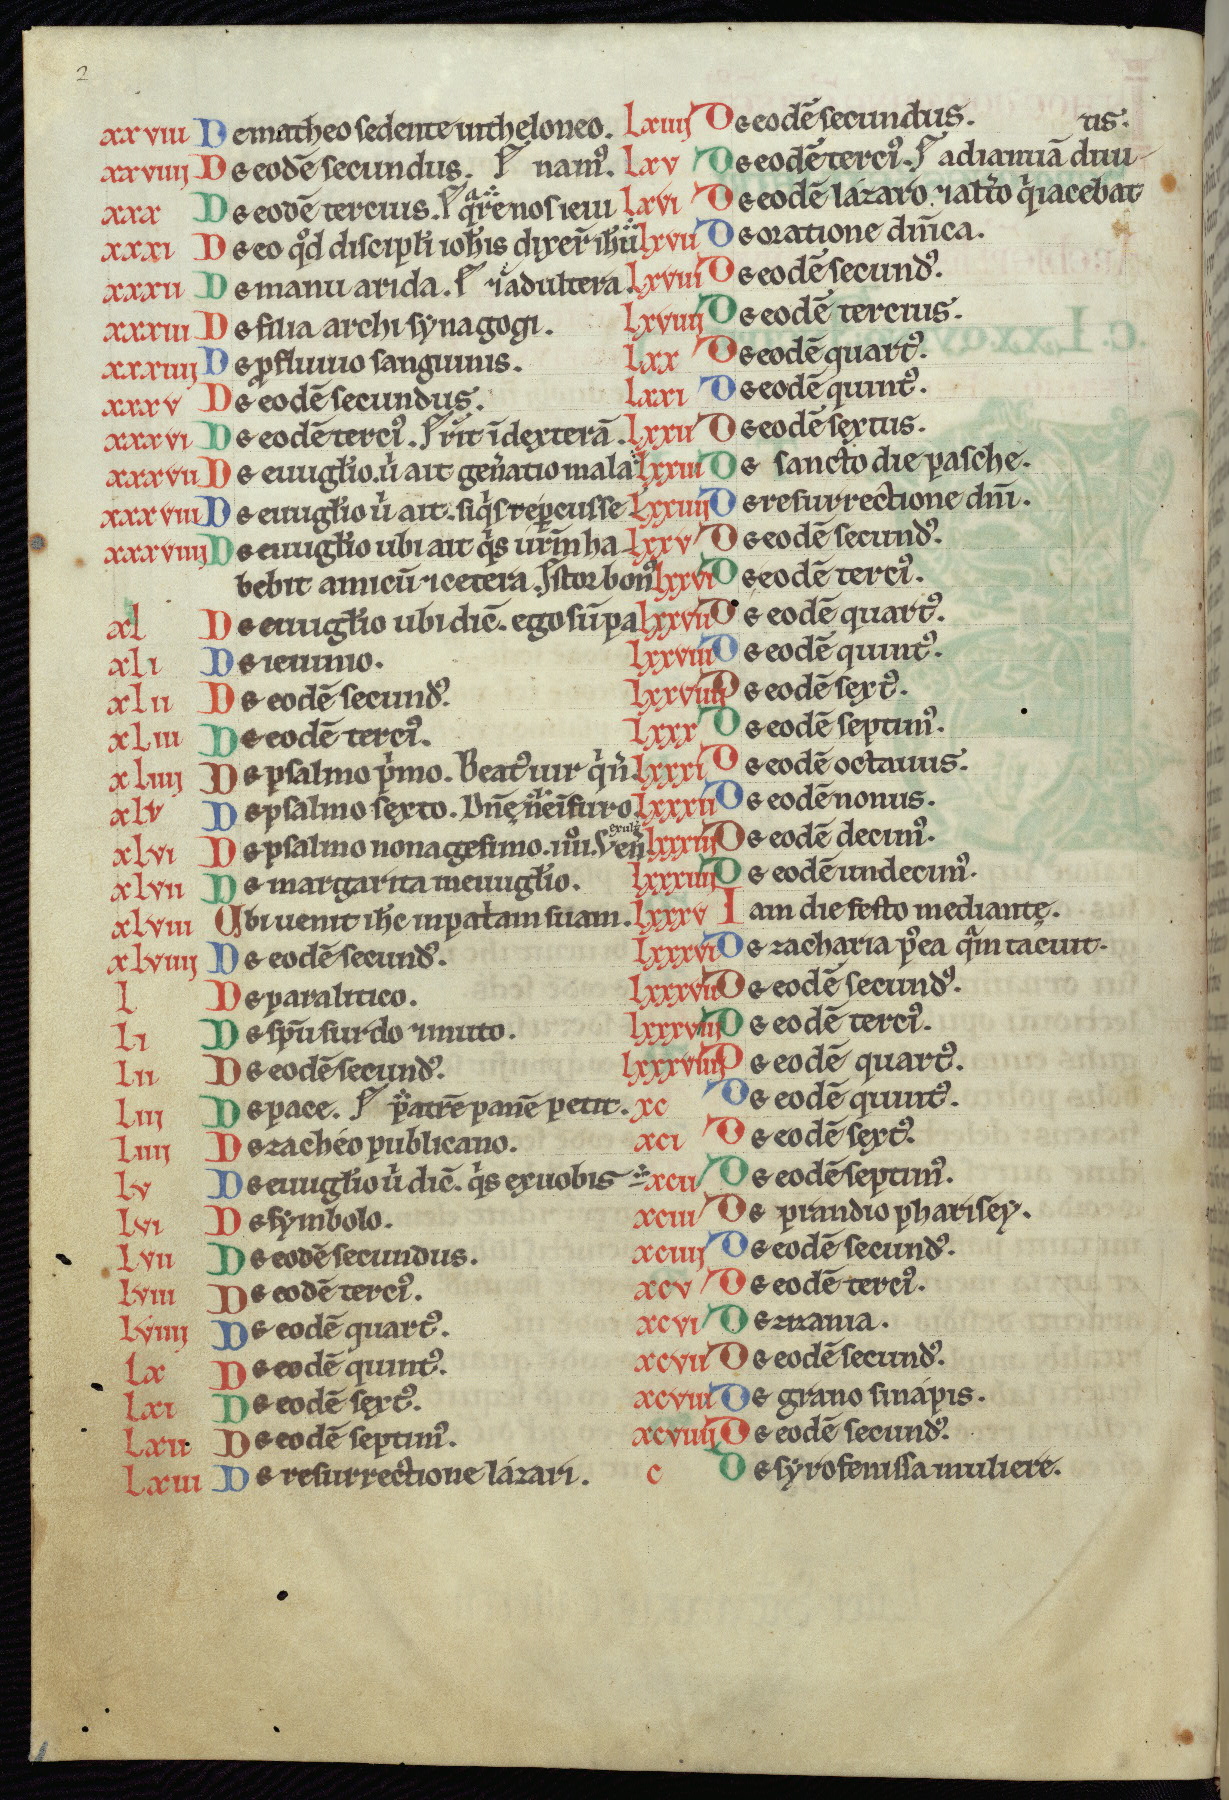 2
xxviii De matheo sedente in theloneo.
xxviiii De eodē secundus. nam᷒.
xxx De eodē tercius. q̄re nos ieiu
xxxi De eo qd discipłi ioħis dixer̄ ihū
xxxii De manu arida. ⁊ adultera.
xxxiii De filia archisynagogi.
xxxiiii De ꝓfluuio sanguinis.
xxxv De eodē secundus.
xxxvi De eodē terciꝰ. rit ī dexterā.
xxxvii De euuglio. ū ait gen̄atio mala
xxxviii De euuglio ū ait. siq̄s te ꝑcusse
xxxviiii De euuglio ubi ait q̄s ur̄m ha
bebit amicū ⁊ cetera. stor bonꝰ
xl De euuglio ubi dic̄. ego sū pa
xli De ieiunio.
xlii De eodē secundꝰ.
xliii De eodē terciꝰ.
xliiii De psalmo p̄mo. Beatꝰ uir q̄ n̄.
xlv De psalmo sexto. Dn̄e n̄ e in furo.
xlvi De psalmo nonagesimo. iiiio. Ven̄ exulꝫ
xlvii De margarita in euuglio.
xlviii Ubi uenit ihc in pat̄am suam.
xlviiii De eodē secundꝰ.
l De paralitico.
li De sp̄u surdo ⁊ muto.
lii De eodē secundꝰ.
liii De pace. patrē panē petit.
liiii De zacheo publicano.
lv De euuglio ū dic̄. q̄s ex uobis
lvi De symbolo.
lvii De eodē secundus.
lviii De eodē terciꝰ.
lviiii De eodē quartꝰ.
lx De eodē quintꝰ.
lxi De eodē sextꝰ.
lxii De eodē septimꝰ.
lxiii De resurrectione lazari.
lxiiii De eodē secundus. tis.
lxv De eodē terciꝰ. ad ianuā diui
lxvi De eodē lazaro. ⁊ alt̄o q̄ iacebat
lxvii De oratione dn̄ica.
lxviii De eodē secundꝰ.
lxviiii De eodē tercius.
lxx De eodē quartꝰ.
lxxi De eodē quintꝰ.
lxxii De eodē sextus.
lxxiii De sancto die pasche.
lxxiiii De resurrectione dn̄i.
lxxv De eodē secundꝰ.
lxxvi De eodē terciꝰ.
lxxvii De eodē quartꝰ.
lxxviii De eodē quintꝰ.
lxxviiii De eodē sextꝰ.
lxxx De eodē septimꝰ.
lxxxi De eodē octauus.
lxxxii De eodē nonus.
lxxxiii De eodē decimꝰ.
lxxxiiii De eodē undecimꝰ.
lxxxv Iam die festo mediantę.
lxxxvi De zacharia p̄ ea q̄m tacuit.
lxxxvii De eodē secundꝰ.
lxxxviii De eodē terciꝰ.
lxxxviiii De eodē quartꝰ.
xc De eodē quintꝰ.
xci De eodē sextꝰ.
xcii De eodē septimꝰ.
xciii De prandio pharisey.
xciiii De eodē secundꝰ.
xcv De eodē terciꝰ.
xcvi De zizania.
xcvii De eodē secundꝰ.
xcviii De grano sinapis.
xcviiii De eodē secundꝰ.
c De syrofenissa muliere.